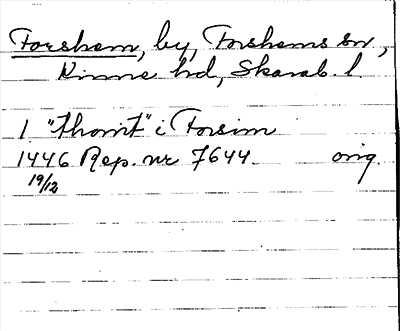 Forshem, by, Forshems sn,
Kinne hd, Skarab. l.
1 "thomt" i Forsim
1446 Rep. nr 7644. orig.
19/12